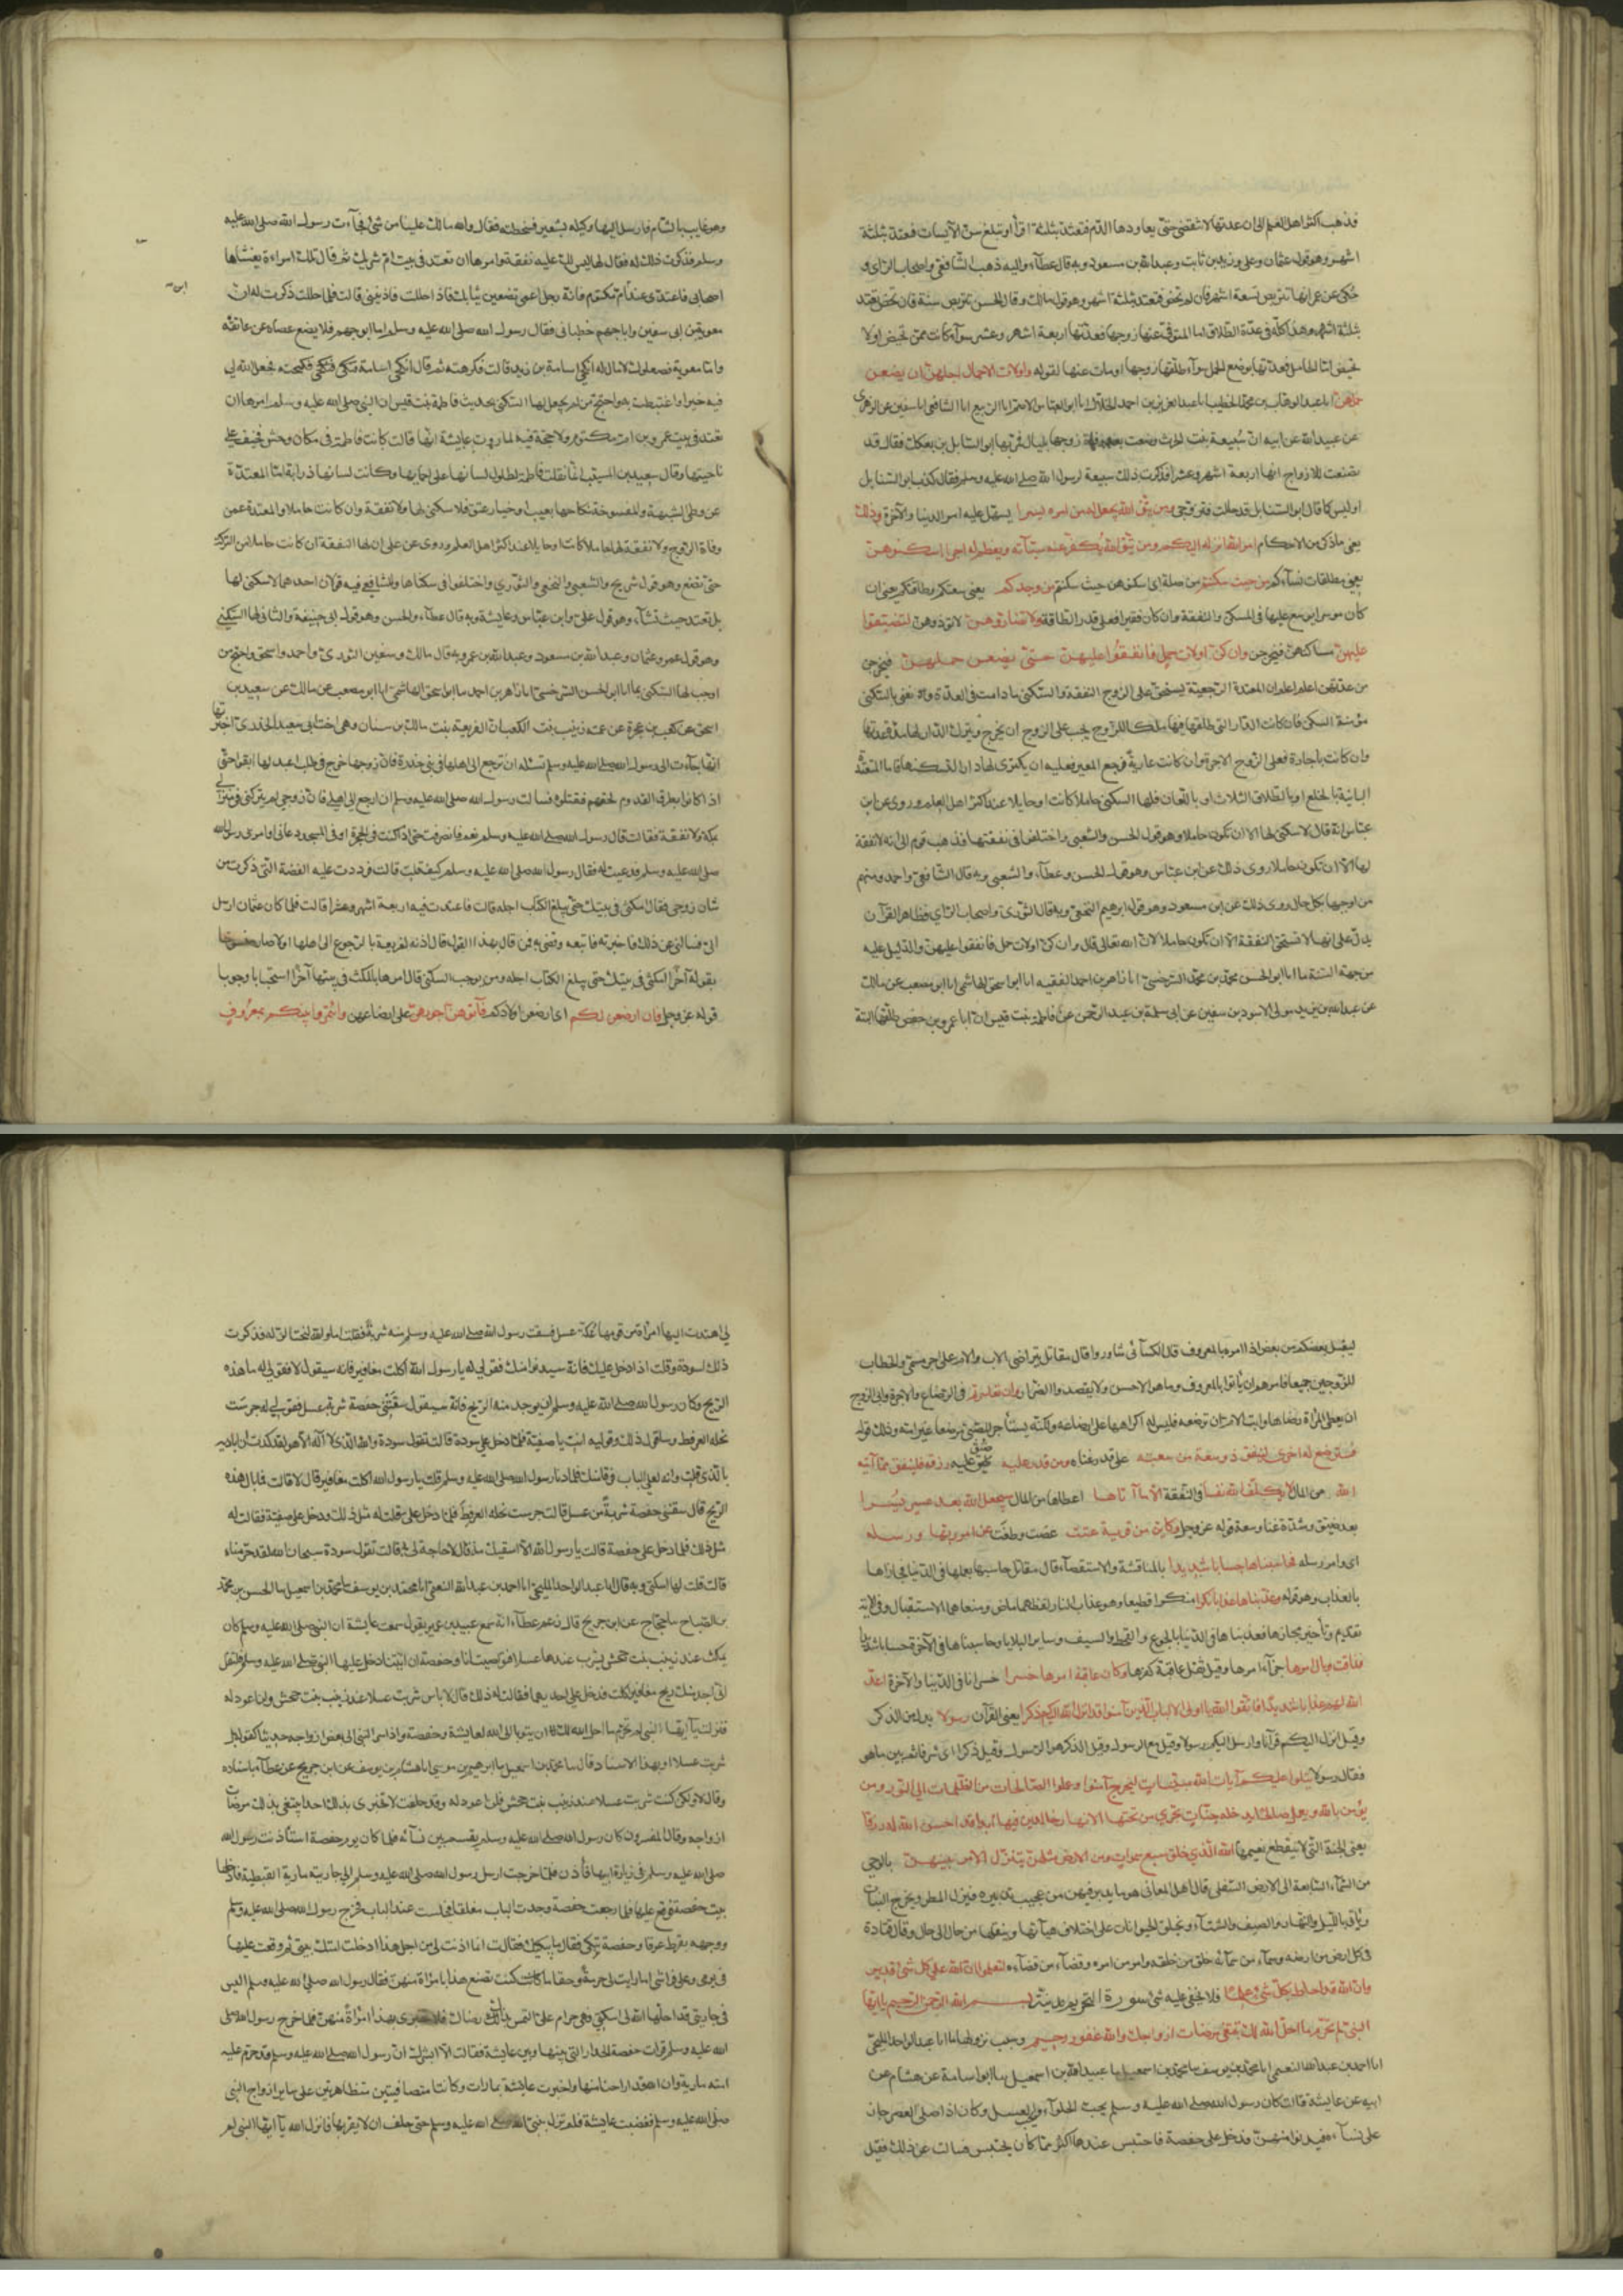 فذهب اكثر اهل العلم الى ان عدتها لا تنقضى حتى يعاودها الدم فتعتد بثلثة اقرأ او تبلغ سن الآيسات فتعتد بثلثة
اشهر وهو قول عثمان وعلى وزيد بن ثابت وعبد الله بن مسعود وبه قال عطآء واليه ذهب الشافعى واصحاب الراى و
حكى عن عمر انها تتربص تسعة اشهر فان لم تحض فتعتد ثلثة اشهر وهو قول مالك وقال الحسن تتربص سنة فان لم تحض تعتد
ثلثة اشهر وهذا كله فى عدة الطلاق اما المتوفى عنها زوجها فعدتها اربعة اشهر وعشر سوآء كانت ممن تحيض او لا
تحيض امّا الحامل فعدتها بوضع الحمل سوآء طلقها زوجها او مات عنها لقوله واولات الاحمال اجلهنّ ان يضعن
حملهن انا عبد الوهاب بن محمد الخطيب انا عبد العزيز بن احمد الخلال انا ابو العباس الاصم انا الربيع انا الشافعى انا سفين عن الزهرى
عن عبيد الله عن ابيه ان سُبيعة بنت الحرث وضعت بعد وفاة زوجها بليال فمر بها ابو السنابل بن بعكك فقال قد
تصنعت للازواج انها اربعة اشهر وعشرا فذكرت ذلك سبيعة لرسول الله صلى الله عليه وسلم فقال كذب ابو السنابل
او ليس كما قال ابو السنابل قد حللت فتزوجى ومن يتق الله يجعل له من امره يسرا يسهل عليه امر الدنيا والآخرة وذلك
يعنى ما ذكر من الاحكام امر الله انزله اليكم ومن يتق الله يكفر عنه سيآته ويعظم له اجرا اسكنوهن
يعنى مطلقات نسآءكم من حيث سكنتم من صلة اى اسكنوهن حيث سكنتم من وجدكم يعنى سعتكم وطاقتكم يعنى ان
كان موسرا يوسع عليها فى المسكن والنفقة وان كان فقيرا فعلى قدر الطاقة ولا تضاروهن لا تؤذوهن لتضيقوا
عليهن مساكنهن فيخرجن وان كن اولات حمل فانفقوا عليهن حتى يضعن حملهن فيخرجن
من عدتهن اعلم ان المعتدة الرجعية يستحق على الزوج النفقة والسكنى ما دامت فى العدة ونعنى بالسكنى
مؤنة السكنى فان كانت الدار التى طلقها فيها ملكا للزوج يجب على الزوج ان يخرج ويترك الدار لها مدة عدتها
وان كانت باجارة فعلى الزوج الاجرة وان كانت عارية فرجع المعير فعليه ان يكترى لها دارا تسكنها فاما المعتدة
الباينة بالخلع او بالطلاق الثلاث او باللعان فلها السكنى حاملا كانت او حايلا عند اكثر اهل العلم وروى عن ابن
عباس انه قال لا سكنى لها الا ان تكون حاملا وهو قول الحسن والشعبى واختلفوا فى نفقتها فذهب قوم الى انه لا نفقة
لها الا ان تكون حاملا روى ذلك عن ابن عباس وهو قول الحسن وعطآء والشعبى وبه قال الشافعى واحمد ومنهم
من اوجبها بكل حال روى ذلك عن ابن مسعود وهو قول ابرهيم النخعى وبه قال الثورى واصحاب الراى فظاهر القرآن
يدل على انها لا تستحق النفقة الا ان تكون حاملا لان الله تعالى قال وان كن اولات حمل فانفقوا عليهن والدليل عليه
من جهة السنة ما انا ابو الحسن محمد بن محمد السرخسى انا زاهر بن احمد الفقيه انا ابو اسحق الهاشمى انا ابو مصعب عن مالك
عن عبد الله بن يزيد مولى الاسود بن سفين عن ابى سلمة بن عبد الرحمن عن فاطمة بنت قيس ان ابا عمرو بن حفص طلقها البتة
وهو غايب بالشام فارسل اليها وكيله بشعير فسخطته فقال والله مالك علينا من شئ فجآءت رسول الله صلى الله عليه
وسلم فذكرت ذلك له فقال لها ليس لك عليه نفقة وامرها ان تعتد فى بيت ام شريك ثم قال تلك امراءة يغشاها
اصحابى فاعتدى عند ابن ام مكتوم فانه رجل اعمى تضعين ثيابك فاذا حللت فاذنينى قالت فلما حللت ذكرت له ان
معوية بن ابى سفين واباجهم خطبانى فقال رسول الله صلى الله عليه وسلم اما ابو جهم فلا يضع عصاه عن عاتقه
واما معوية فصعلوك لا مال له انكحى اسامة بن زيد قالت فكرهته ثم قال انكحى اسامة فنكحته فجعل الله لى
فيه خيرا واغتبطت به واحتج من لم يجعل لها السكنى بحديث فاطمة بنت قيس ان النبى صلى الله عليه وسلم امرها ان
تعتد فى بيت عمرو بن ام مكتوم ولا حجة فيه لما روى عن عايشة انها قالت كانت فاطمة فى مكان وحش فخيف على
ناحيتها وقال سعيد بن المسيب انما نقلت فاطمة لطول لسانها على احمايها وكانت لسانها ذرابة اما المعتدة
عن وطى الشبهة والمفسوخة نكاحها بعيب او خيار عتق فلا سكنى لها ولا نفقة وان كانت حاملا والمعتدة عن
وفاة الزوج ولا نفقة لها حاملا كانت او حايلا عند اكثر اهل العلم وروى عن على ان لها النفقة ان كانت حاملا من التركة
حتى تضع وهو قول شريح والشعبى والنخعى والثورى واختلفوا فى سكناها وللشافعى فيه قولان احدهما لا سكنى لها
بل تعتد حيث تشآء وهو قول على وابن عباس وعايشة وبه قال عطآء والحسن وهو قول ابى حنيفة والثانى لها السكنى
وهو قول عمر وعثمان وعبد الله بن مسعود وعبد الله بن عمر وبه قال مالك وسفين الثورى واحمد واسحق واحتج من
اوجب لها السكنى بما انا ابو الحسن السرخسى انا زاهر بن احمد انا ابو اسحق الهاشمى انا ابو مصعب عن مالك عن سعيد بن
اسحق عن كعب بن عجرة عن عمته زينب بنت كعب ان الفريعة بنت مالك بن سنان وهى اخت ابى سعيد الخدرى اخبرتها
انها جآءت الى رسول الله صلى الله عليه وسلم تسئله ان ترجع الى اهلها فى بنى خدرة فان زوجها خرج فى طلب اعبد لها ابقوا حتى
اذا كانوا بطرف القدوم لحقهم فقتلوه فسالت رسول الله صلى الله عليه وسلم ان ارجع الى اهلى فان زوجى لم يتركنى فى منزل
يملكه ولا نفقة فقالت قال رسول الله صلى الله عليه وسلم نعم فانصرفت حتى اذا كنت فى الحجرة او فى المسجد دعانى او امر بى رسول الله
صلى الله عليه وسلم فدعيت له فقال رسول الله صلى الله عليه وسلم كيف قلت قالت فرددت عليه القصة التى ذكرت من
شان زوجى فقال امكثى فى بيتك حتى يبلغ الكتاب اجله قالت فاعتدت فيه اربعة اشهر وعشرا قالت فلما كان عثمان ارسل
الى فسالنى عن ذلك فاخبرته فاتبعه وقضى به فمن قال بهذا القول قال اذنه لفريعة بالرجوع الى اهلها اولا صار منسوخا
بقوله آخرا امكثى فى بيتك حتى يبلغ الكتاب اجله ومن لم يوجب السكنى قال امرها بالمكث فى بيتها آخرا استحبابا لا وجوبا
قوله عز وجل فان ارضعن لكم اى ارضعن اولادكم فآتوهن اجورهن على ارضاعهن وائتمروا بينكم بمعروف
ليقبل بعضكم من بعض اذا امره بالمعروف قال الكسآئى شاوروا قال مقاتل بتراضى الاب والام على اجر مسمى والخطاب
للزوجين جميعا فامرهم ان ياتوا بالمعروف وما هو الاحسن ولا يقصدوا الضرار وان تعاسرتم فى الرضاع والاجرة وابى الزوج
ان يعطى المرأة رضاها وابت الام ان ترضعه فليس له اكراهها على ارضاعه ولكنه يستأجر للصبى مرضعا غير امه وذلك قوله
فسترضع له اخرى لينفق ذو سعة من سعته على قدر غناه ومن قدر عليه ضيق عليه رزقه فلينفق مما آتيه
الله من المال لا يكلف الله نفسا فى النفقة الا ما آتاها اعطاها من المال سيجعل الله بعد عسر يسرا
بعد ضيق وشدة غنا وسعة قوله عز وجل وكاين من قرية عتت عصت وطغت عن امر ربها ورسله
اى وامر رسله فحاسبناها حسابا شديدا بالمناقشة والاستقصآء قال مقاتل حاسبها بعملها فى الدنيا فجازاها
بالعذاب وهو قوله وعذبناها عذابا نكرا منكرا فظيعا وهو عذاب النار لفظهما ماض ومعناهما الاستقبال وفى الاية
تقديم وتأخير مجازها فعذبناها فى الدنيا بالجوع والقحط والسيف وساير البلايا وحاسبناها فى الآخرة حسابا شديدا
فذاقت وبال امرها جزآء امرها وقيل ثقل عاقبة كفرها وكان عاقبة امرها خسرا خسرانا فى الدنيا والآخرة اعد
الله لهم عذابا شديدا فاتقوا الله يا اولى الالباب الذين آمنوا قد انزل الله اليكم ذكرا يعنى القرآن رسولا بدل من الذكر
وقيل انزل اليكم قرآنا وارسل اليكم رسولا وقيل مع الرسول وقيل الذكر هو الرسول وقيل ذكرا اى شرفا ثم بين ما هو
فقال رسولا يتلوا عليكم آيات الله مبينات ليخرج الذين آمنوا وعملوا الصالحات من الظلمات الى النور ومن
يؤمن بالله ويعمل صالحا يدخله جنات تجرى من تحتها الانهار خالدين فيها ابدا قد احسن الله له رزقا
يعنى الجنة التى لا ينقطع نعيمها الله الذى خلق سبع سموات ومن الارض مثلهن يتنزل الامر بينهن بالوحى
من السمآء السابعة الى الارض السفلى قال اهل المعانى هو ما يدبر فيهن من عجيب تدبيره فينزل المطر ويخرج النبات
وياتى بالليل والنهار والصيف والشتآء ويخلق الحيوانات على اختلاف هيآتها وينقلها من حال الى حال وقال قتادة
فى كل ارض من ارضه وسمآء من سمآئه خلق من خلقه وامر من امره وقضآء من قضآءه لتعلموا ان الله على كل شئ قدير
وان الله قد احاط بكل شئ علما فلا يخفى عليه شئ سورة التحريم مدنية بسم الله الرحمن الرحيم يا ايها
النبى لم تحرم ما احل الله لك تبتغى مرضات ازواجك والله غفور رحيم وسبب نزولها ما انا عبد الواحد المليحى
انا احمد بن عبد الله النعيمى انا محمد بن يوسف نا محمد بن اسمعيل نا عبيد الله بن اسمعيل نا ابو اسامة عن هشام عن
ابيه عن عايشة قالت كان رسول الله صلى الله عليه وسلم يحب الحلوآء والعسل وكان اذا صلى العصر جاز
على نسآءه فيدنوا منهن فدخل على حفصة فاحتبس عندها اكثر مما كان يحتبس فسالت عن ذلك فقيل
لى اهدت اليها امرأة من قومها عكة عسل فسقت رسول الله صلى الله عليه وسلم منه شربة فقلت اما والله لنحتالن له فذكرت
ذلك لسودة وقلت اذا دخل عليك فانه سيدنوا منك فقولى له يا رسول الله اكلت مغافير فانه سيقول لا فقولى له ما هذه
الريح وكان رسول الله صلى الله عليه وسلم يشتد ان يوجد منه الريح فانه سيقول سقتنى حفصة شربة عسل فقولى له جرست
نحله العرفط وساقول ذلك وقوليه انت يا صفية فلما دخل على سودة قالت تقول سودة والله الذى لا اله الا هو لقد كدت ان ابادره
بالذى قلت وانه لعلى الباب فرقا منك فلما دنا رسول الله صلى الله عليه وسلم قلت يا رسول الله اكلت مغافير قال لا قالت فما بال هذه
الريح قال سقتنى حفصة شربة من عسل قالت جرست نحله العرفط فلما دخل على قلت له مثل ذلك ودخل على صفية فقالت له
مثل ذلك فلما دخل على حفصة قالت يا رسول الله الا اسقيك منه قال لا حاجة لى به قالت تقول سودة سبحان الله لقد حرمناه
قالت قلت لها اسكتى وبه قال انا عبد الواحد المليحى انا احمد بن عبد الله النعيمى انا محمد بن يوسف نا محمد بن اسمعيل نا الحسن بن محمد
بن الصباح نا حجاج عن ابن جريج قال زعم عطآء انه سمع عبيد بن عمير يقول سمعت عايشة ان النبى صلى الله عليه وسلم كان
يمكث عند زينب بنت جحش يشرب عندها عسلا فتواصيت انا وحفصة ان ايتنا دخل عليها النبى صلى الله عليه وسلم فلتقل
انى اجد منك ريح مغافير اكلت فدخل على احديهما فقالت له ذلك قال لا باس شربت عسلا عند زينب بنت جحش ولن اعود له
فنزلت يآ ايها النبى لم تحرم ما احل الله لك الى ان تتوبا الى الله لعايشة وحفصة واذ اسر النبى الى بعض ازواجه حديثا لقوله بل
شربت عسلا وبهذا الاسناد قال نا محمد بن اسمعيل نا ابرهيم بن موسى انا هشام بن يوسف عن ابن جريج عن عطآء باسناده
وقال لا ولكن كنت شربت عسلا عند زينب بنت جحش فلن اعود له وقد حلفت لا تخبرى بذلك احدا يبتغى بذلك مرضات
ازواجه وقال المفسرون كان رسول الله صلى الله عليه وسلم يقسم بين نسآئه فلما كان يوم حفصة استأذنت رسول الله
صلى الله عليه وسلم فى زيارة ابيها فأذن فلما خرجت ارسل رسول الله صلى الله عليه وسلم الى جاريته مارية القبطية فادخلها
بيت حفصة فوقع عليها فلما رجعت حفصة وجدت الباب مغلقا فجلست عند الباب فخرج رسول الله صلى الله عليه وسلم
ووجهه يقطر عرقا وحفصة تبكى فقال ما يبكيك فقالت انما اذنت لى من اجل هذا ادخلت امتك بيتى ثم وقعت عليها
فى يومى وعلى فراشى اما رايت لى حرمة وحقا ما كنت تصنع هذا بامرأة منهن فقال رسول الله صلى الله عليه وسلم اليس
هى جاريتى قد احلها الله لى اسكتى فهى حرام على التمس بذلك رضاك فلا تخبرى بهذا امرأة منهن فلما خرج رسول الله صلى
الله عليه وسلم قرعت حفصة الجدار التى بينها وبين عايشة فقالت الا ابشرك ان رسول الله صلى الله عليه وسلم قد حرم عليه
امته مارية وان الله قد اراحنا منها واخبرت عايشة بما رات وكانتا متصافيتين متظاهرتين على ساير ازواج النبى
صلى الله عليه وسلم فغضبت عايشة فلم تزل بنبى الله صلى الله عليه وسلم حتى حلف ان لا يقربها فانزل الله يآ ايها النبى لم